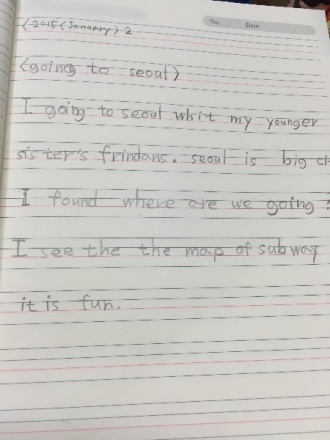 No. Date
(2015 (January) 2
(going to seoul)
I going to seoul whit my younger
sister's frindans. seoul is big
I found where are we going?
I see the the map of subway
it is fun.